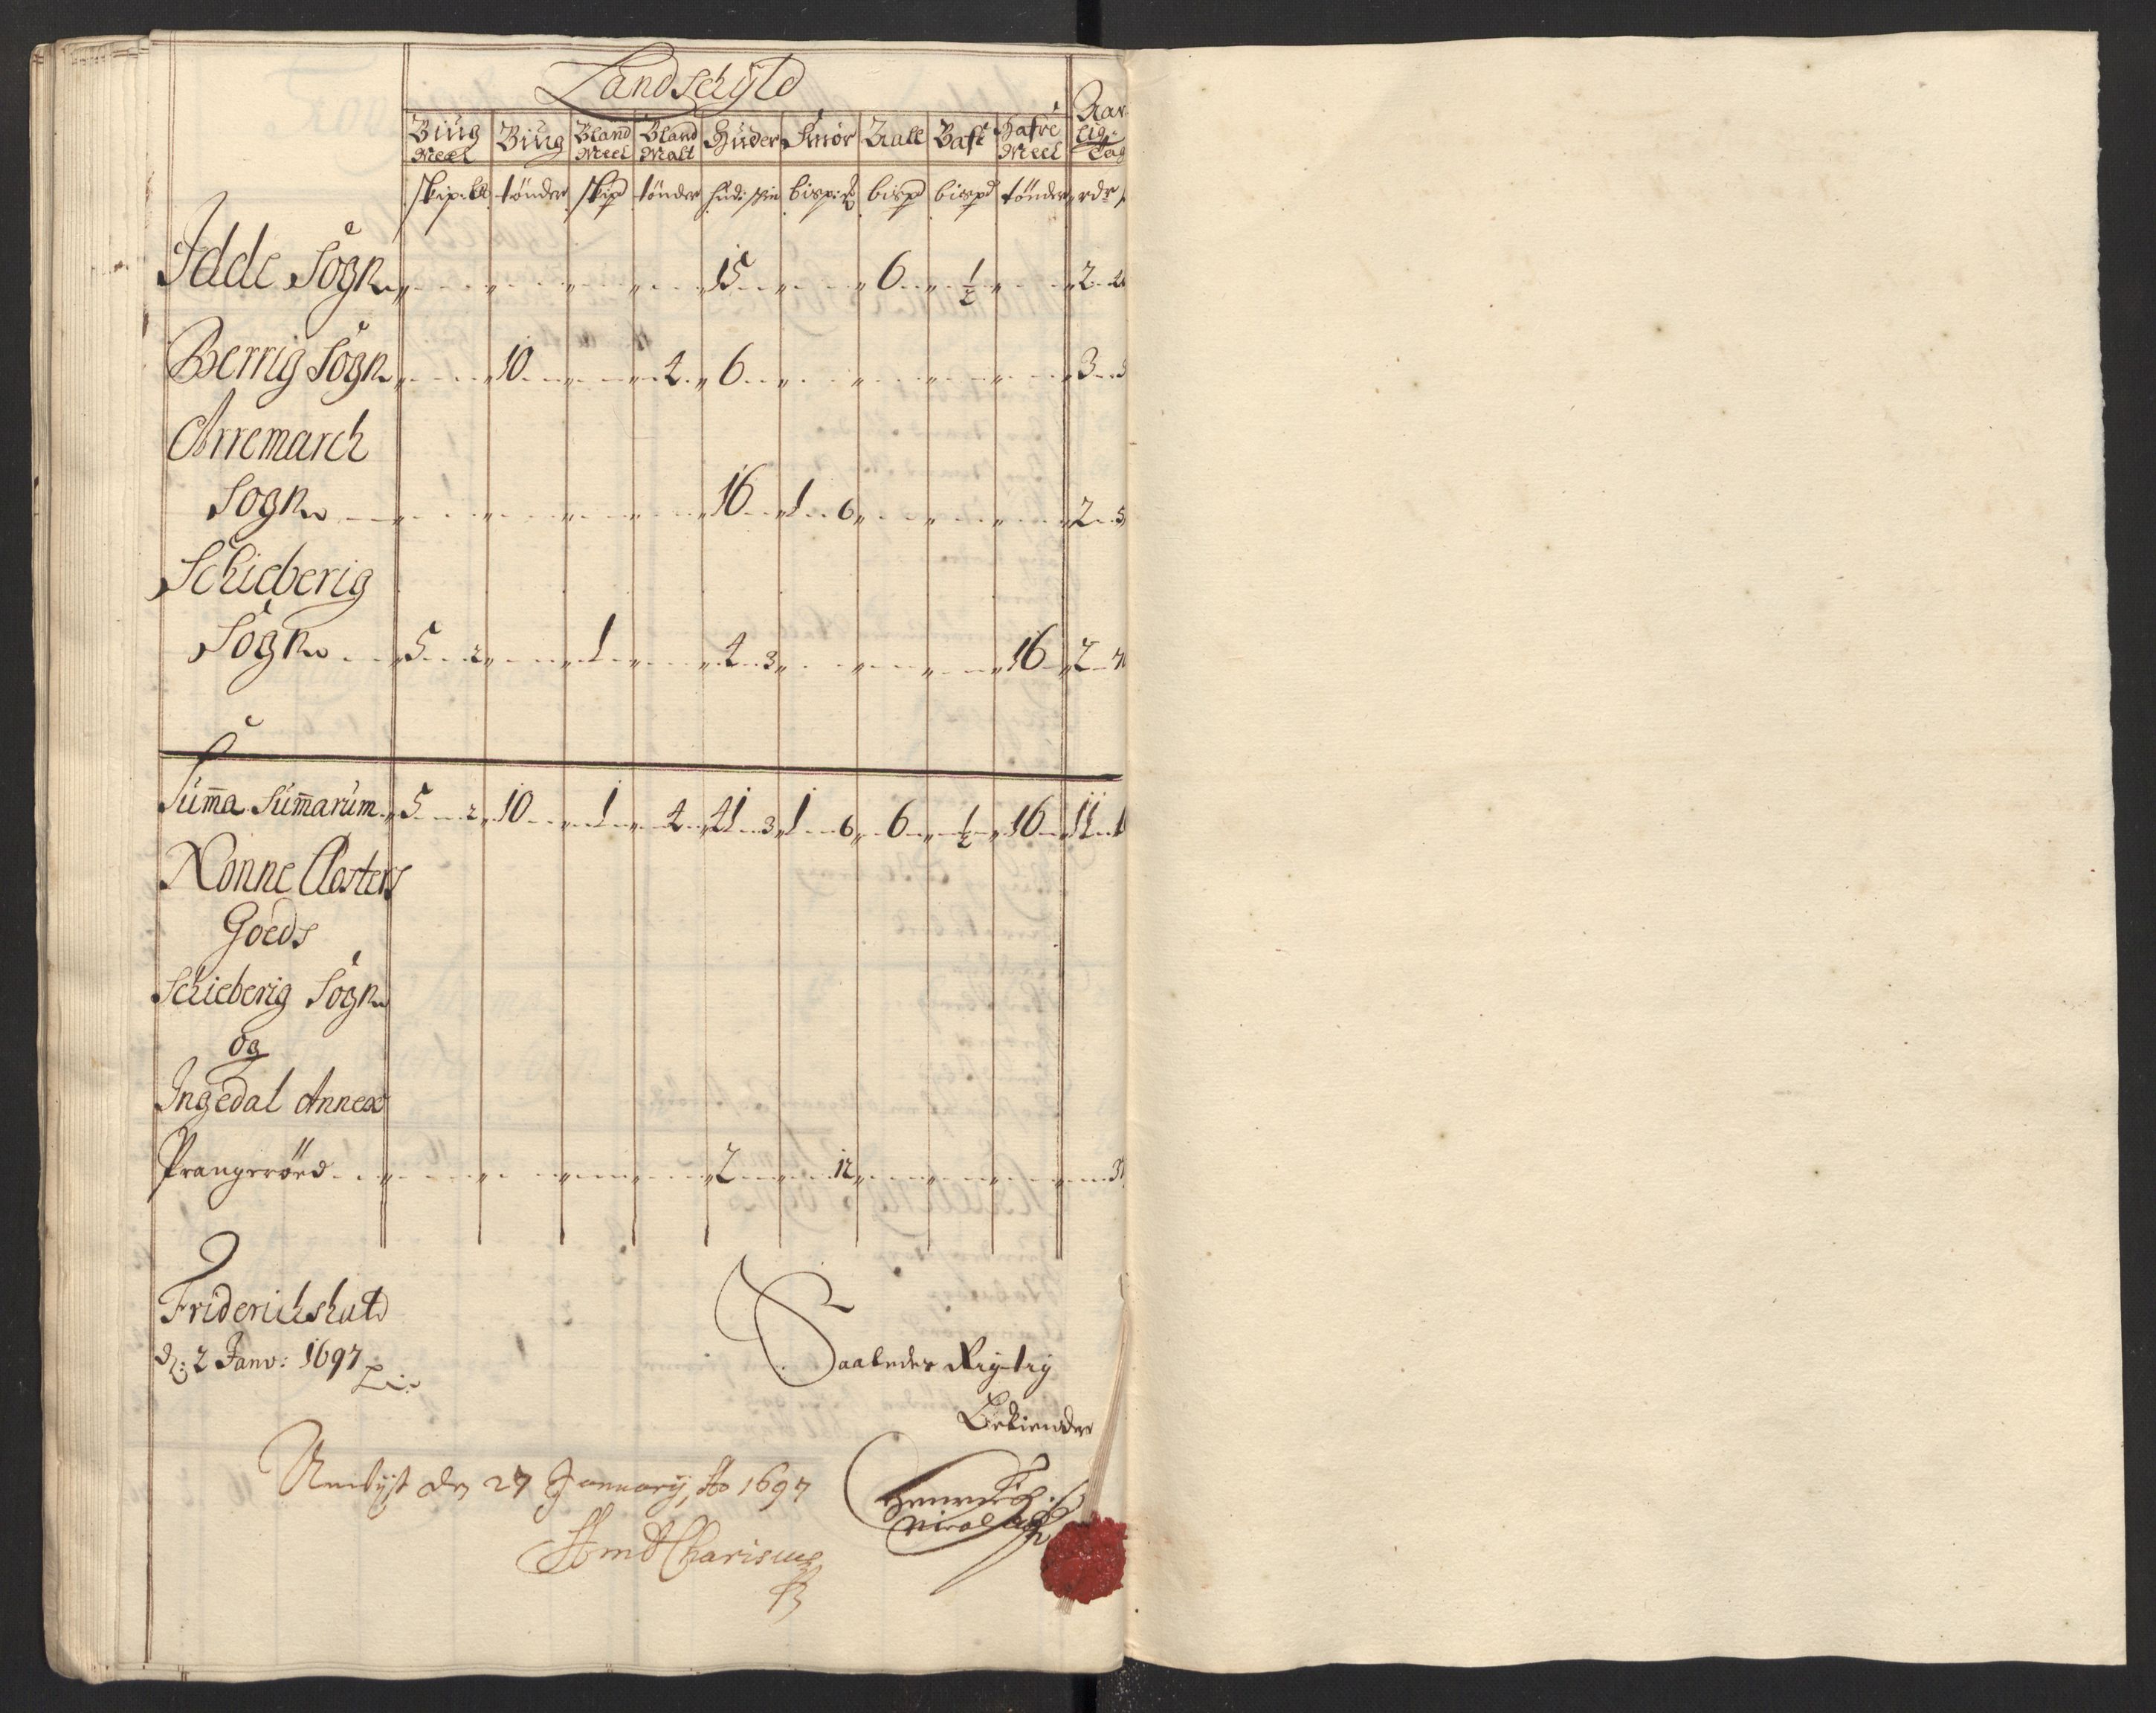 Landschyld
Biug Meel | Biug | Bland Meel | Bland Malt | Huder | Smör | Talle | Bast | Hafre Meel | Aar- lig- Tag
skip: | tönder | skip | tönder | hud: skin | bisp: | bispd | bispd | tönder | rdr
Idde Sogn 15 6 ½ 2
Berrig Sogn 10 2 6 3
Arremarch
Sogn 16 1 6 2
Schieberig
Sogn 5 2 1 4 3 16 2
Summa Summarum 5 2 10 1 2 41 3 1 6 6 ½ 16 11
Nonne Closters
Goeds
Schieberig Sogn
og
Ingedal Annex
Prangeröed 2 12
Friderichshald
d: 2 Janv: 1697
Saaledes Rigtig
Bekiender
Henrich
Nicol
den 27 January, Ao 1697